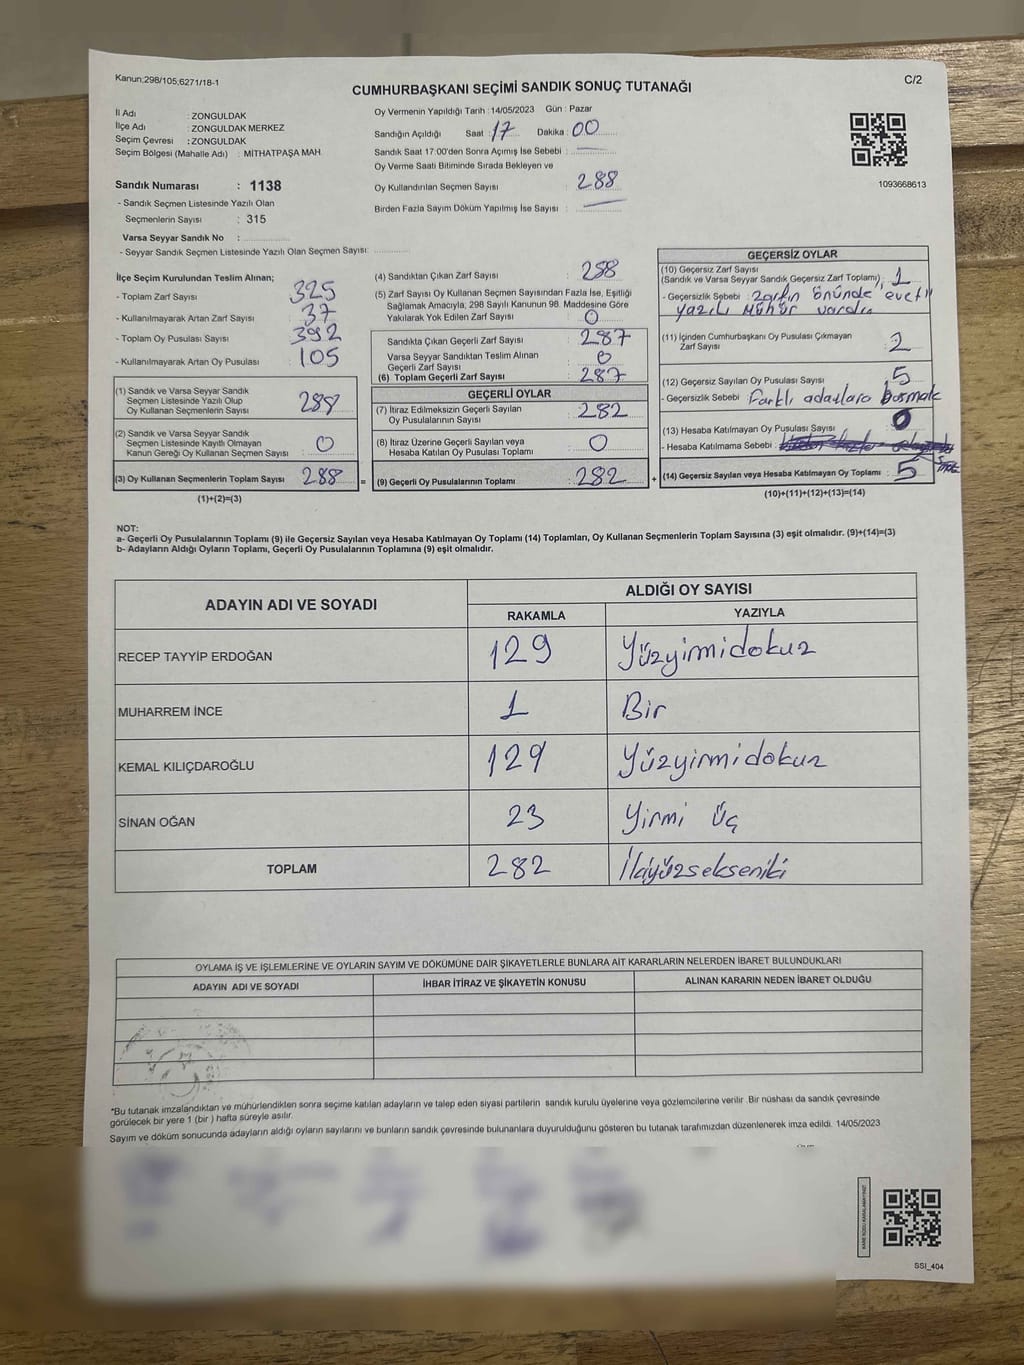 Kanun;298/105;6271/18-1
C/2
CUMHURBAŞKANI SEÇİMİ SANDIK SONUÇ TUTANAĞI
İl Adı : ZONGULDAK
İlçe Adı : ZONGULDAK MERKEZ
Seçim Çevresi : ZONGULDAK
Seçim Bölgesi (Mahalle Adı) : MİTHATPAŞA MAH.
Sandık Numarası : 1138
- Sandık Seçmen Listesinde Yazılı Olan
Seçmenlerin Sayısı : 315
Varsa Seyyar Sandık No :
- Seyyar Sandık Seçmen Listesinde Yazılı Olan Seçmen Sayısı:
Oy Vermenin Yapıldığı Tarih : 14/05/2023 Gün : Pazar
Sandığın Açıldığı Saat : 17 Dakika : 00
Sandık Saat 17:00'den Sonra Açımış İse Sebebi : —
Oy Verme Saati Bitiminde Sırada Bekleyen ve
Oy Kullandırılan Seçmen Sayısı : 288
Birden Fazla Sayım Döküm Yapılmış İse Sayısı : —
1093668613
İlçe Seçim Kurulundan Teslim Alınan;
- Toplam Zarf Sayısı : 325
- Kullanılmayarak Artan Zarf Sayısı : 37
- Toplam Oy Pusulası Sayısı : 392
- Kullanılmayarak Artan Oy Pusulası : 105
(1) Sandık ve Varsa Seyyar Sandık
Seçmen Listesinde Yazılı Olup
Oy Kullanan Seçmenlerin Sayısı : 288
(2) Sandık ve Varsa Seyyar Sandık
Seçmen Listesinde Kayıtlı Olmayan
Kanun Gereği Oy Kullanan Seçmen Sayısı : 0
(3) Oy Kullanan Seçmenlerin Toplam Sayısı : 288
(1)+(2)=(3)
(4) Sandıktan Çıkan Zarf Sayısı : 288
(5) Zarf Sayısı Oy Kullanan Seçmen Sayısından Fazla İse, Eşitliği
Sağlamak Amacıyla, 298 Sayılı Kanunun 98. Maddesine Göre
Yakılarak Yok Edilen Zarf Sayısı : 0
Sandıkta Çıkan Geçerli Zarf Sayısı : 287
Varsa Seyyar Sandıktan Teslim Alınan
Geçerli Zarf Sayısı : 0
(6) Toplam Geçerli Zarf Sayısı : 287
GEÇERLİ OYLAR
(7) İtiraz Edilmeksizin Geçerli Sayılan
Oy Pusulalarının Sayısı : 282
(8) İtiraz Üzerine Geçerli Sayılan veya
Hesaba Katılan Oy Pusulası Toplamı : 0
= (9) Geçerli Oy Pusulalarının Toplamı : 282
GEÇERSİZ OYLAR
(10) Geçersiz Zarf Sayısı
(Sandık ve Varsa Seyyar Sandık Geçersiz Zarf Toplamı) : 1
- Geçersizlik Sebebi : Zarfın önünde "evet"
yazılı mühür vardı
(11) İçinden Cumhurbaşkanı Oy Pusulası Çıkmayan
Zarf Sayısı : 2
(12) Geçersiz Sayılan Oy Pusulası Sayısı : 5
- Geçersizlik Sebebi : Farklı adaylara basmak
(13) Hesaba Katılmayan Oy Pusulası Sayısı : 0
- Hesaba Katılmama Sebebi :
+ (14) Geçersiz Sayılan veya Hesaba Katılmayan Oy Toplamı : 5
(10)+(11)+(12)+(13)=(14)
NOT:
a- Geçerli Oy Pusulalarının Toplamı (9) ile Geçersiz Sayılan veya Hesaba Katılmayan Oy Toplamı (14) Toplamları, Oy Kullanan Seçmenlerin Toplam Sayısına (3) eşit olmalıdır. (9)+(14)=(3)
b- Adayların Aldığı Oyların Toplamı, Geçerli Oy Pusulalarının Toplamına (9) eşit olmalıdır.
ADAYIN ADI VE SOYADI ALDIĞI OY SAYISI
RAKAMLA YAZIYLA
RECEP TAYYİP ERDOĞAN 129 Yüzyirmidokuz
MUHARREM İNCE 1 Bir
KEMAL KILIÇDAROĞLU 129 Yüzyirmidokuz
SİNAN OĞAN 23 Yirmi Üç
TOPLAM 282 İkiyüzsekseniki
OYLAMA İŞ VE İŞLEMLERİNE VE OYLARIN SAYIM VE DÖKÜMÜNE DAİR ŞİKAYETLERLE BUNLARA AİT KARARLARIN NELERDEN İBARET BULUNDUKLARI
ADAYIN ADI VE SOYADI İHBAR İTİRAZ VE ŞİKAYETİN KONUSU ALINAN KARARIN NEDEN İBARET OLDUĞU
*Bu tutanak imzalandıktan ve mühürlendikten sonra seçime katılan adayların ve talep eden siyasi partilerin sandık kurulu üyelerine veya gözlemcilerine verilir. Bir nüshası da sandık çevresinde
görülecek bir yere 1 (bir) hafta süreyle asılır.
Sayım ve döküm sonucunda adayların aldığı oyların sayılarını ve bunların sandık çevresinde bulunanlara duyurulduğunu gösteren bu tutanak tarafımızdan düzenlenerek imza edildi. 14/05/2023
KARE KODU KARALAMAYINIZ!
SSI_404